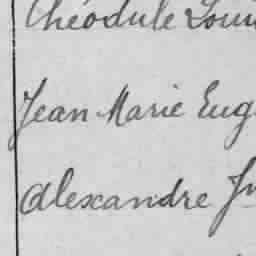 Théodule Loui
Jean Marie Eug
Alexandre